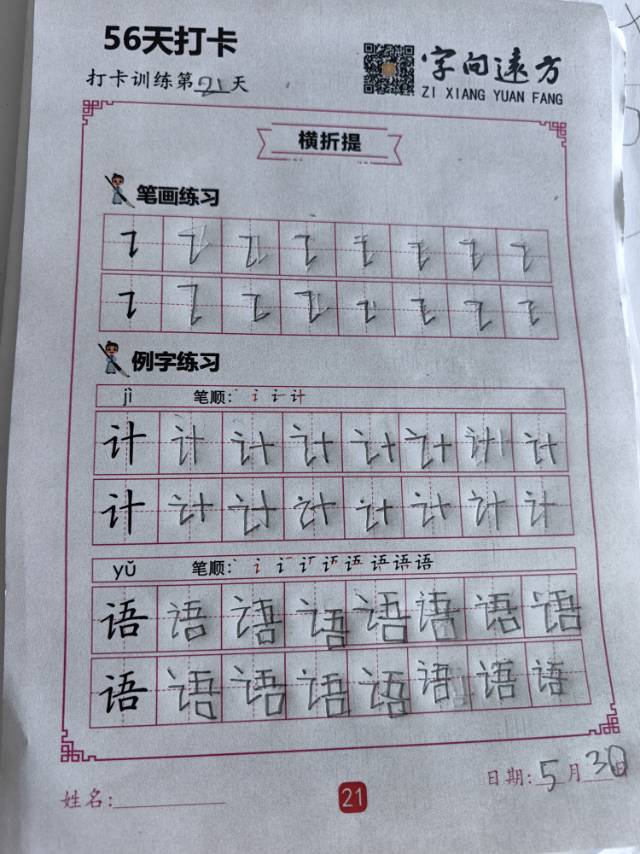 56天打卡
打卡训练第21天
字向远方
ZI XIANG YUAN FANG
横折提
笔画练习
例字练习
jì 笔顺: 计
计 计 计 计 计 计 计 计
计 计 计 计 计 计 计 计
yǔ 笔顺: 语 语 语
语 语 语 语 语 语 语 语
语 语 语 语 语 语 语 语
姓名:
日期: 5月30日
21